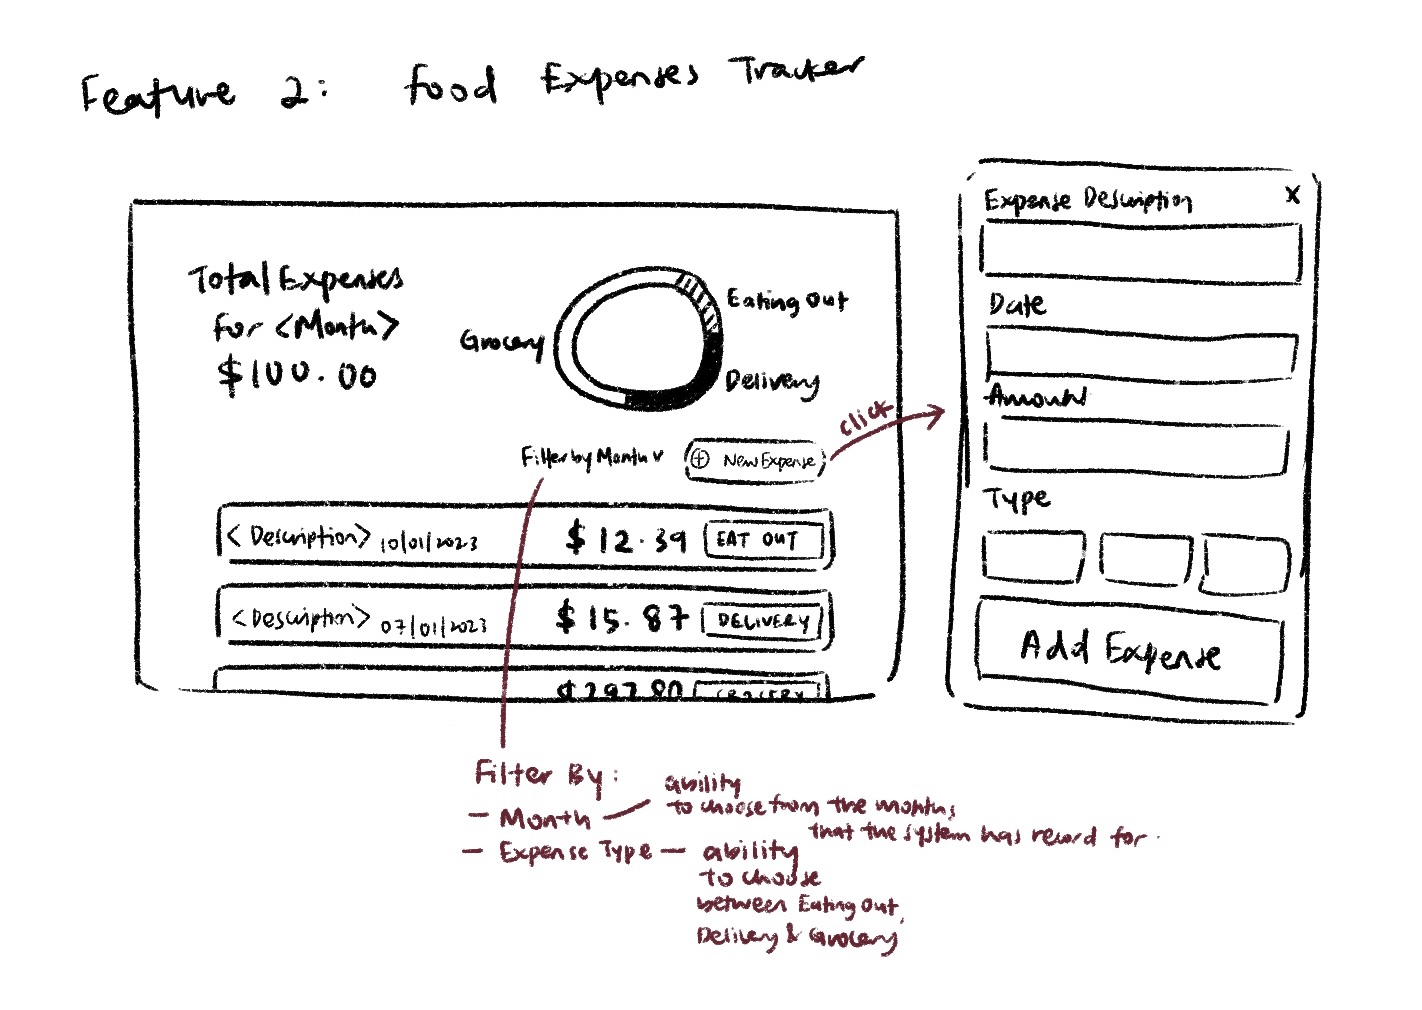 Feature 2: Food Expenses Tracker
Total Expenses
for <Month>
$100.00
Grocery
Eating Out
Delivery
Filter by Month v
+ New Expense
click
<Description> 10/01/2023 $12.39 EAT OUT
<Description> 07/01/2023 $15.87 DELIVERY
$297.80 GROCERY
Expense Description X
Date
Amount
Type
Add Expense
Filter By:
- Month — ability
to choose from the months,
that the system has record for.
- Expense Type — ability
to choose
between Eating Out,
Delivery & Grocery